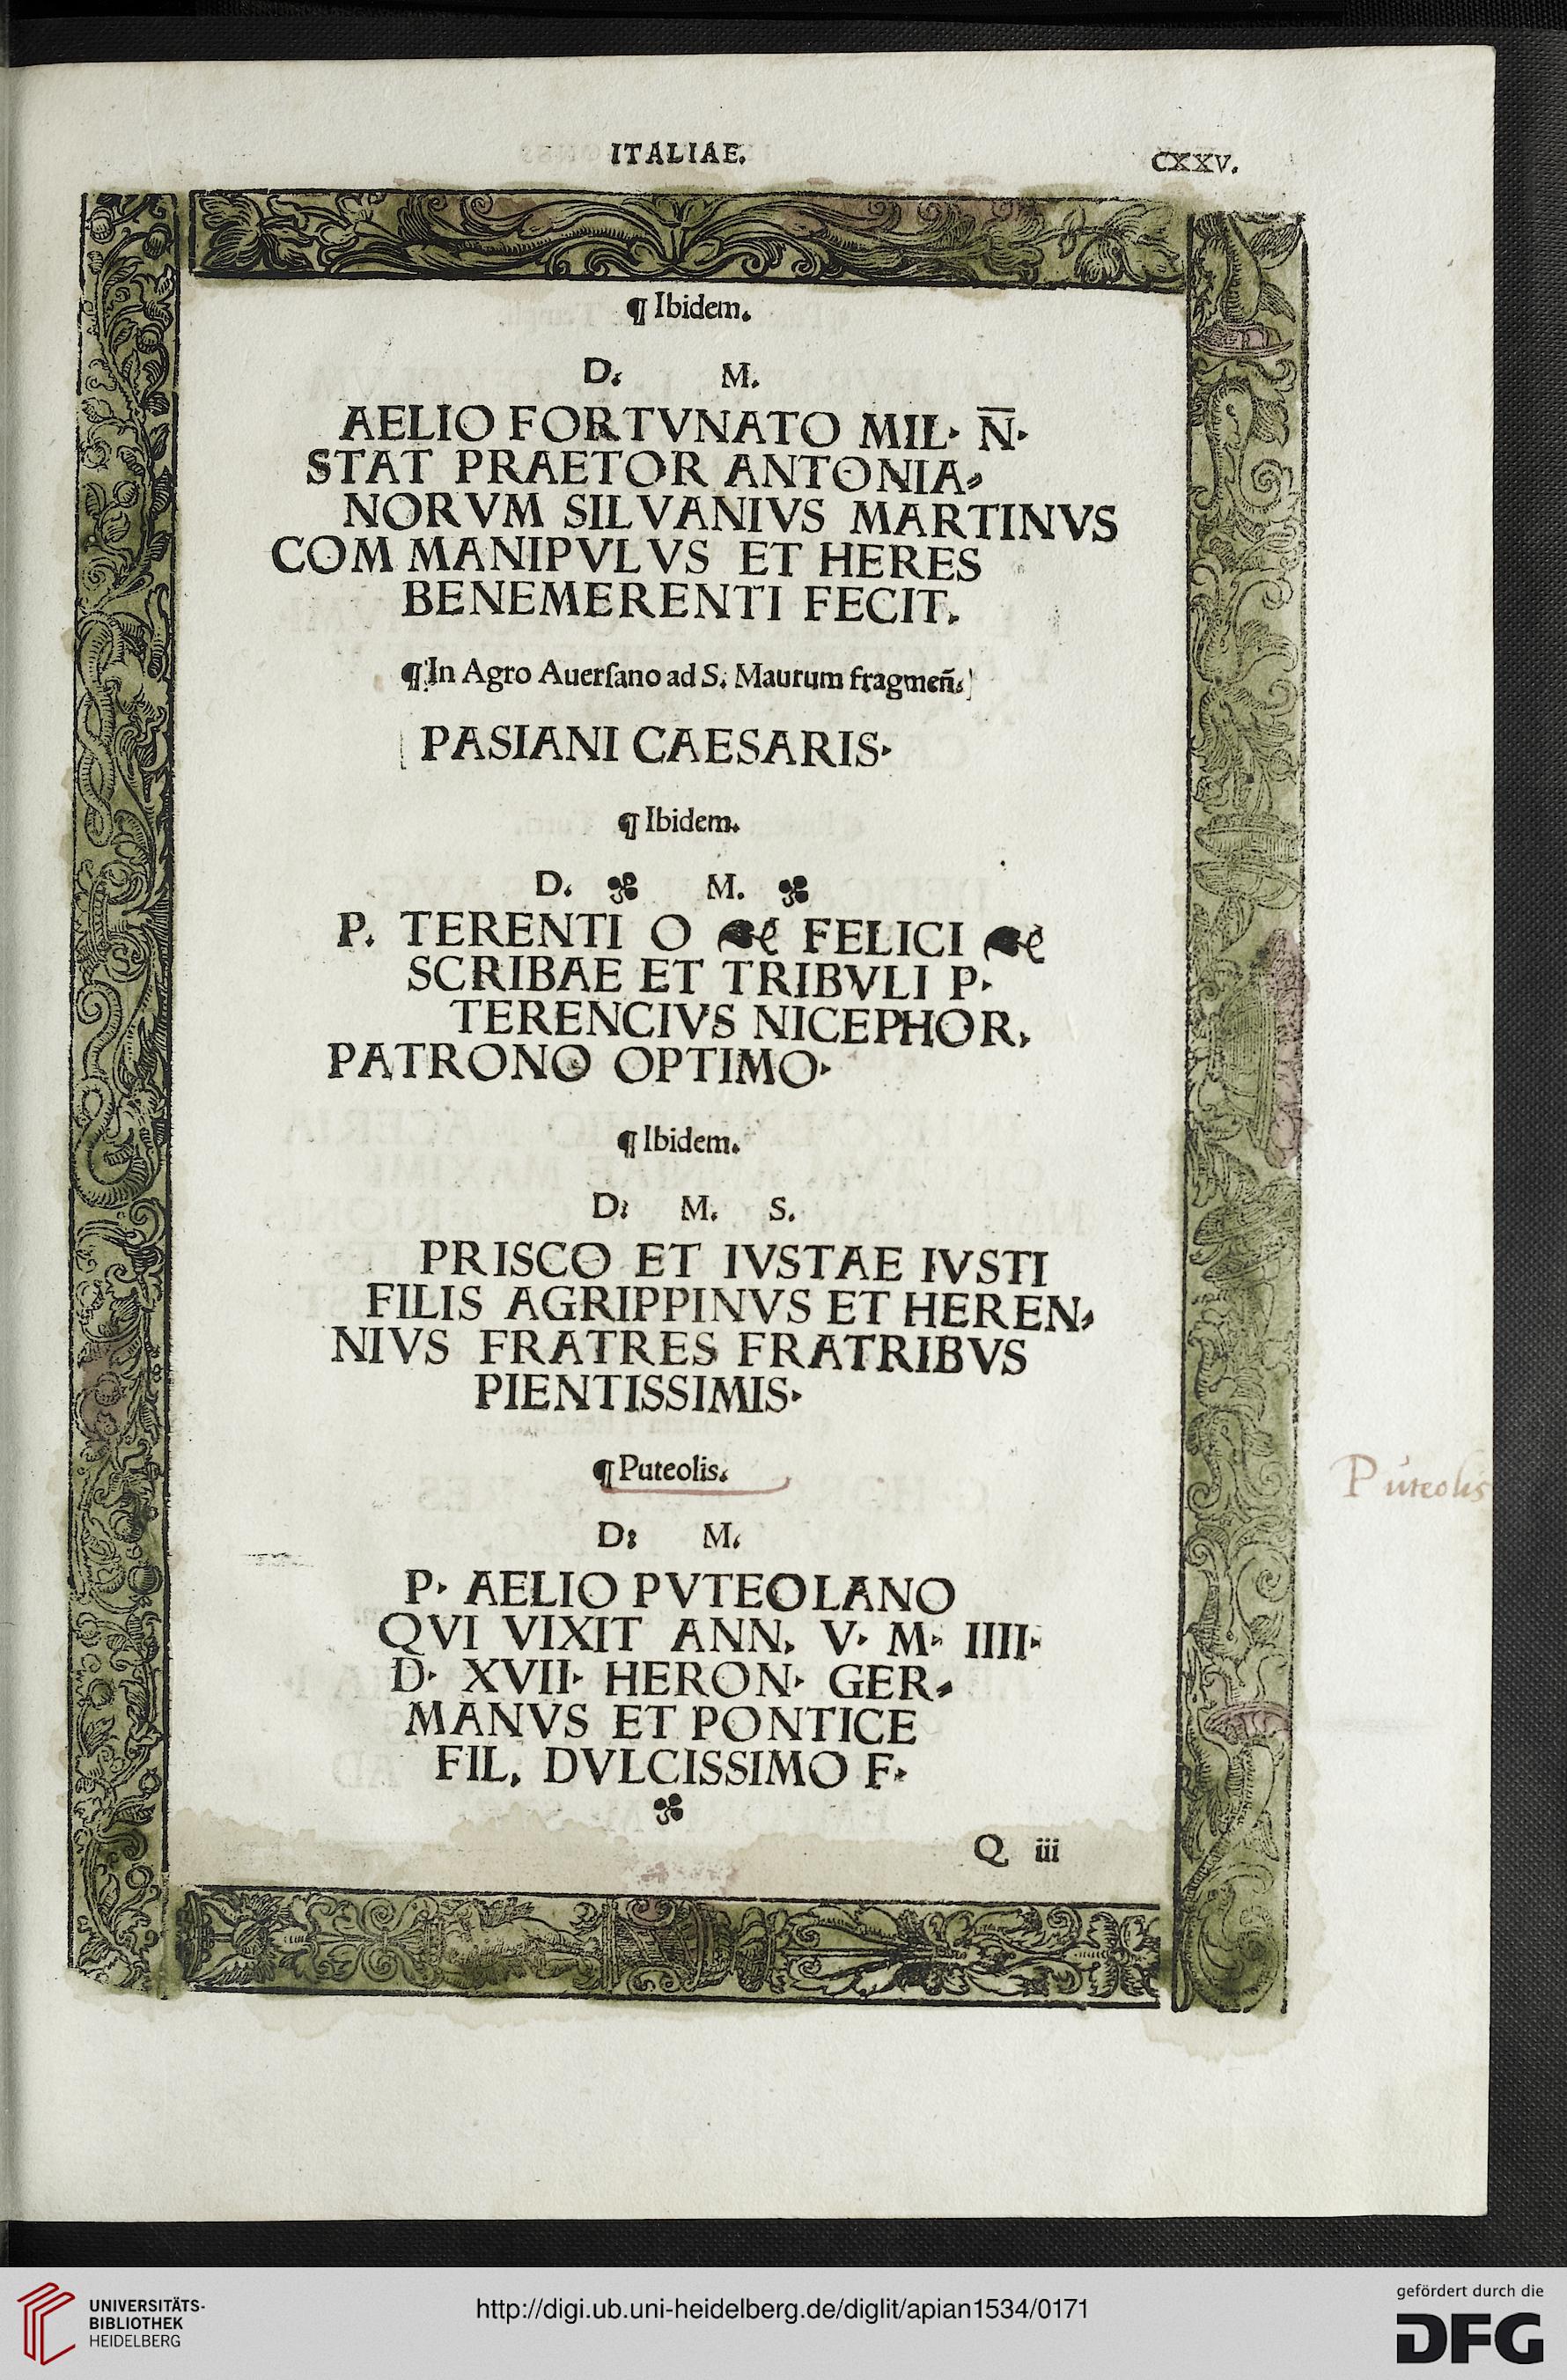 ITALIAE.
CXXV.
¶ Ibidem.
D. M.
AELIO FORTVNATO MIL· N̅·
STAT PRAETOR ANTONIA⸗
NORVM SILVANIVS MARTINVS
COM MANIPVLVS ET HERES
BENEMERENTI FECIT.
¶ In Agro Auerſano ad S. Maurum fragmen̄.
PASIANI CAESARIS·
¶ Ibidem.
D. M.
P. TERENTI O ❧ FELICI ❧
SCRIBAE ET TRIBVLI P·
TERENCIVS NICEPHOR.
PATRONO OPTIMO·
¶ Ibidem.
D: M. S.
PRISCO ET IVSTAE IVSTI
FILIS AGRIPPINVS ET HEREN⸗
NIVS FRATRES FRATRIBVS
PIENTISSIMIS·
¶ Puteolis.
Puteolis
D: M.
P· AELIO PVTEOLANO
QVI VIXIT ANN. V· M· IIII·
D· XVII· HERON· GER⸗
MANVS ET PONTICE
FIL. DVLCISSIMO F·
Q iii
UNIVERSITÄTS-
BIBLIOTHEK
HEIDELBERG
http://digi.ub.uni-heidelberg.de/diglit/apian1534/0171
gefördert durch die
DFG